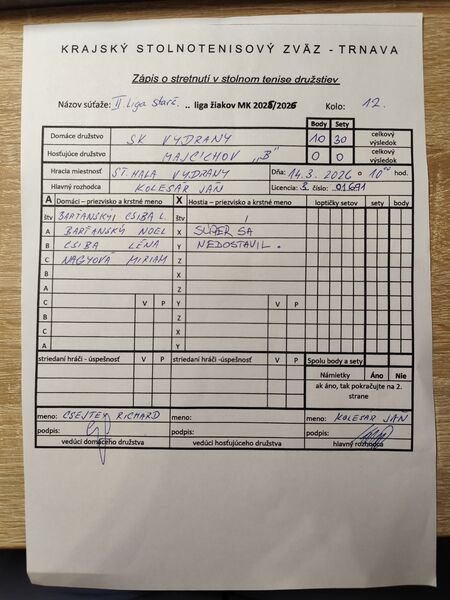 KRAJSKÝ STOLNOTENISOVÝ ZVÄZ - TRNAVA
Zápis o stretnutí v stolnom tenise družstiev
Názov súťaže: II. liga starš. .. liga žiakov MK 2025/2026 Kolo: 12.
Body Sety
Domáce družstvo SK VYDRANY 10 30 celkový výsledok
Hosťujúce družstvo MAJCICHOV "B" 0 0 celkový výsledok
Hracia miestnosť ŠT. HALA VYDRANY Dňa: 14.3.2026 o 10 00 hod.
Hlavný rozhodca KOLESAR JAN Licencia: 3 číslo:
A Domáci – priezvisko a krstné meno X Hostia – priezvisko a krstné meno loptičky setov sety body
štv BARTANSKY/ CSIBA L. štv /
A BARŤANSKÝ NOEL X SÚPER SA
B CSIBA LÉNA Y NEDOSTAVIL.
C NAGYOVÁ MIRIAM Z
A X
B Z
C V P Y V P
B Z
C X
A Y
striedaní hráči - úspešnosť V P striedaní hráči -úspešnosť V P Spolu body a sety
Námietky Áno Nie
ak áno, tak pokračujte na 2. strane
meno: CSEJTEY RICHARD meno: meno: KOLESAR JAN
podpis: podpis: podpis:
vedúci domáceho družstva vedúci hosťujúceho družstva hlavný rozhodca